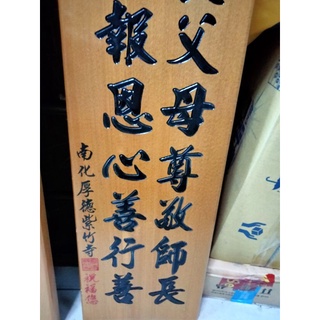 父母尊敬師長
報恩心善行善
南化厚德紫竹寺